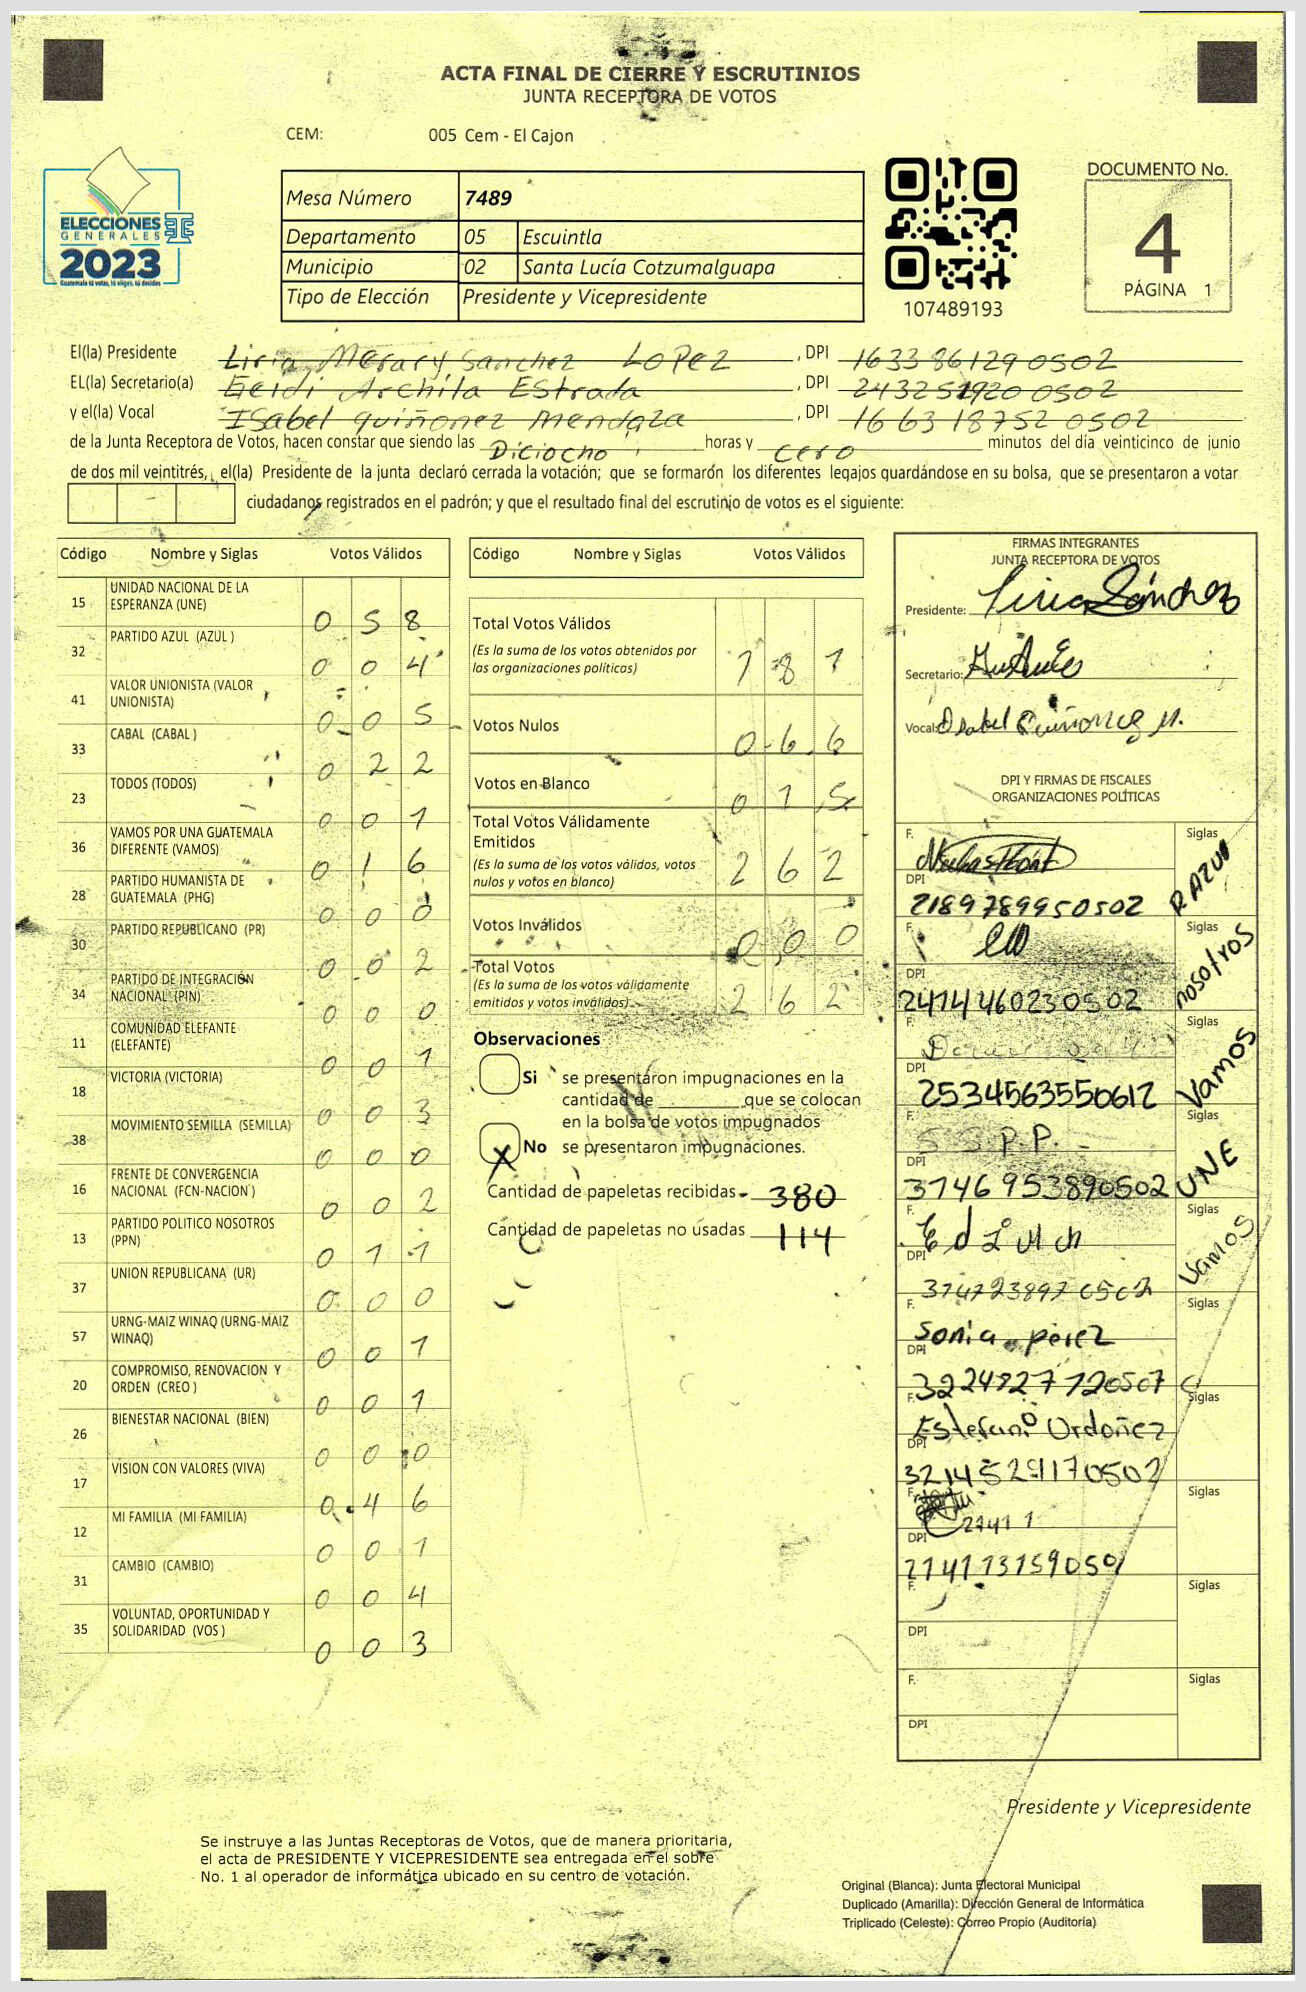 ACTA FINAL DE CIERRE Y ESCRUTINIOS
JUNTA RECEPTORA DE VOTOS
CEM: 005 Cem - El Cajon
ELECCIONES
GENERALES
2023
Guatemala tú votas, tú eliges, tú decides
Mesa Número 7489
Departamento 05 Escuintla
Municipio 02 Santa Lucía Cotzumalguapa
Tipo de Elección Presidente y Vicepresidente
107489193
DOCUMENTO No.
4
PÁGINA 1
El(la) Presidente Liria Merary Sanchez LoPez , DPI 1633 86129 0502
EL(la) Secretario(a) Archila EStrada , DPI 0502
y el(la) Vocal ISabel quiñonez mendoza , DPI 1663 18752 0502
de la Junta Receptora de Votos, hacen constar que siendo las Diciocho horas y cero minutos del día veinticinco de junio
de dos mil veintitrés, el(la) Presidente de la junta declaró cerrada la votación; que se formarón los diferentes legajos guardándose en su bolsa, que se presentaron a votar
ciudadanos registrados en el padrón; y que el resultado final del escrutinio de votos es el siguiente:
Código Nombre y Siglas Votos Válidos
15 UNIDAD NACIONAL DE LA
ESPERANZA (UNE) 0 5 8
32 PARTIDO AZUL (AZUL ) 0 0 4
41 VALOR UNIONISTA (VALOR
UNIONISTA) 0 0 5
33 CABAL (CABAL ) 0 2 2
23 TODOS (TODOS) 0 0 1
36 VAMOS POR UNA GUATEMALA
DIFERENTE (VAMOS) 0 1 6
28 PARTIDO HUMANISTA DE
GUATEMALA (PHG) 0 0 0
30 PARTIDO REPUBLICANO (PR) 0 0 2
34 PARTIDO DE INTEGRACION
NACIONAL (PIN) 0 0 0
11 COMUNIDAD ELEFANTE
(ELEFANTE) 0 0 1
18 VICTORIA (VICTORIA) 0 0 3
38 MOVIMIENTO SEMILLA (SEMILLA) 0 0 0
16 FRENTE DE CONVERGENCIA
NACIONAL (FCN-NACION ) 0 0 2
13 PARTIDO POLITICO NOSOTROS
(PPN) 0 1 1
37 UNION REPUBLICANA (UR) 0 0 0
57 URNG-MAIZ WINAQ (URNG-MAIZ
WINAQ) 0 0 1
20 COMPROMISO, RENOVACION Y
ORDEN (CREO ) 0 0 1
26 BIENESTAR NACIONAL (BIEN) 0 0 0
17 VISION CON VALORES (VIVA) 0 4 6
12 MI FAMILIA (MI FAMILIA) 0 0 1
31 CAMBIO (CAMBIO) 0 0 4
35 VOLUNTAD, OPORTUNIDAD Y
SOLIDARIDAD (VOS ) 0 0 3
Código Nombre y Siglas Votos Válidos
Total Votos Válidos
(Es la suma de los votos obtenidos por
las organizaciones políticas) 1 8 1
Votos Nulos 0 6 6
Votos en Blanco 0 1 5
Total Votos Válidamente
Emitidos
(Es la suma de los votos válidos, votos
nulos y votos en blanco) 2 6 2
Votos Inválidos 0 0 0
Total Votos
(Es la suma de los votos válidamente
emitidos y votos inválidos) 2 6 2
Observaciones
Si se presentaron impugnaciones en la
cantidad de que se colocan
en la bolsa de votos impugnados
X No se presentaron impugnaciones.
Cantidad de papeletas recibidas 380
Cantidad de papeletas no usadas 114
FIRMAS INTEGRANTES
JUNTA RECEPTORA DE VOTOS
Presidente: Liria Sánchez
Secretario:
Vocal: Isabel Quiñonez M.
DPI Y FIRMAS DE FISCALES
ORGANIZACIONES POLÍTICAS
F. Siglas
DPI 2189789950502 P. AZUL
F. Siglas
DPI 2414460230502 nosotros
F. Siglas
DPI 2534563550612 Vamos
F. S S P.P. Siglas
DPI 3746953890502 UNE
F. Siglas
DPI 3747238970502 Vamos
F. Sonia perez Siglas
DPI
F. Estefani Ordoñez Siglas
DPI
F. Siglas
DPI
F. Siglas
DPI
F. Siglas
DPI
Presidente y Vicepresidente
Se instruye a las Juntas Receptoras de Votos, que de manera prioritaria,
el acta de PRESIDENTE Y VICEPRESIDENTE sea entregada en el sobre
No. 1 al operador de informática ubicado en su centro de votación.
Original (Blanca): Junta Electoral Municipal
Duplicado (Amarilla): Dirección General de Informática
Triplicado (Celeste): Correo Propio (Auditoría)